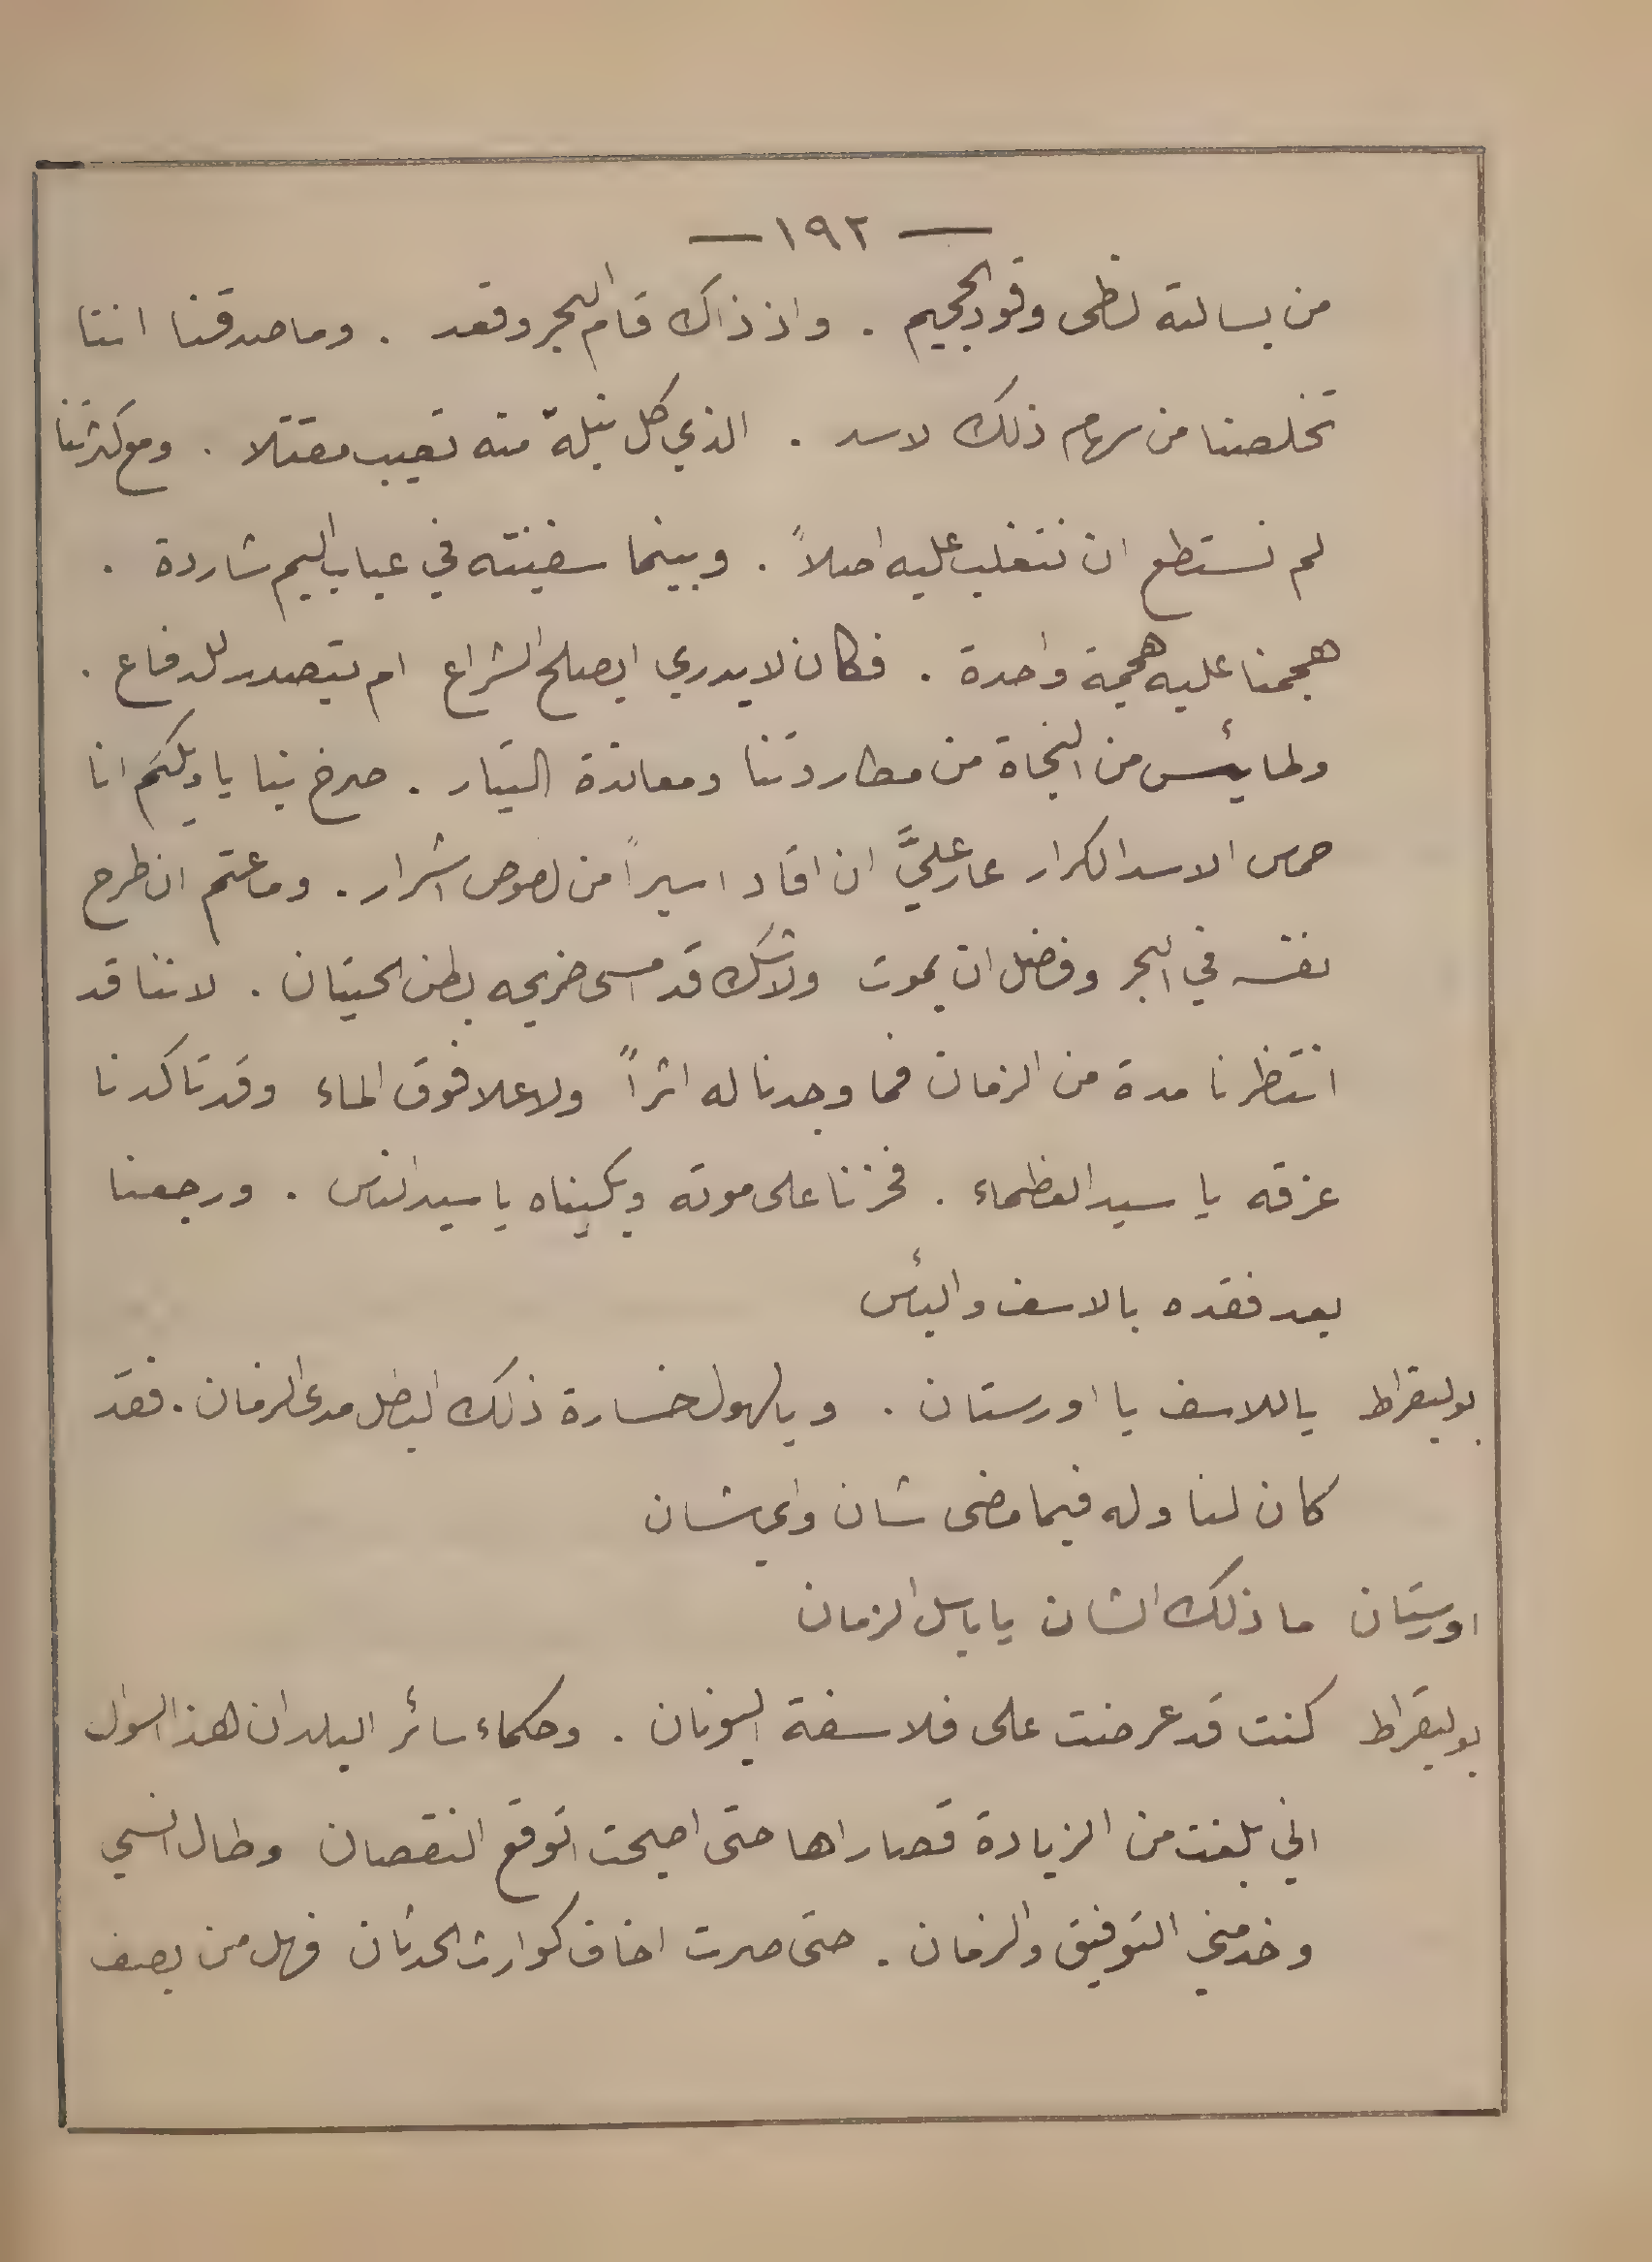 — ١٩٢ —
من بسالته لظى وقود الجحيم . واذ ذاك قام البحر وقعد . وما صدقنا اننا
تخلصنا من سهام ذلك لاسد . الذي كل نبلة منه تصيب مقتلا . ومع كثرتنا
لم نستطع ان نتغلب عليه اصلاً . وبينما سفينته في عباب اليم شاردة .
هجمنا عليه هجمة واحدة . فكان لا يدري ايصلح الشراع ام يتصدر للدفاع .
ولما يئس من النجاة من مطاردتنا ومعاندة التيار . صرخ بنا يا ويلكم انا
حماس الاسد الكرار عار عليَّ ان اقاد اسيراً من لصوص اشرار . وما عتم ان طرح
نفسه في البحر وفضل ان يموت ولا شك قد امسى ضريحه بطن الحيتان . لاننا قد
انتظرنا مدة من الزمان فما وجدنا له اثراً ولا علا فوق الماء وقد تاكدنا
غرقه يا سيد العظماء . فحزنا على موته وبكيناه يا سيد الناس . ورجعنا
بعد فقده بالاسف واليأس
بوليقراط ياللاسف يا اورستان . ويالهول خسارة ذلك البطل مدى الزمان . فقد
كان لنا وله فيما مضى شان واي شان
اورستان ما ذلك الشان يا باسل الزمان
بوليقراط كنت قد عرضت على فلاسفة اليونان . وحكماء سائر البلدان هذا السوال
اني بلغت من الزيادة قصاراها حتى اصبحت اتوقع النقصان وطال انسي
وخدمني التوفيق والزمان . حتى صرت اخاف كوارث الحدثان فهل من يصف